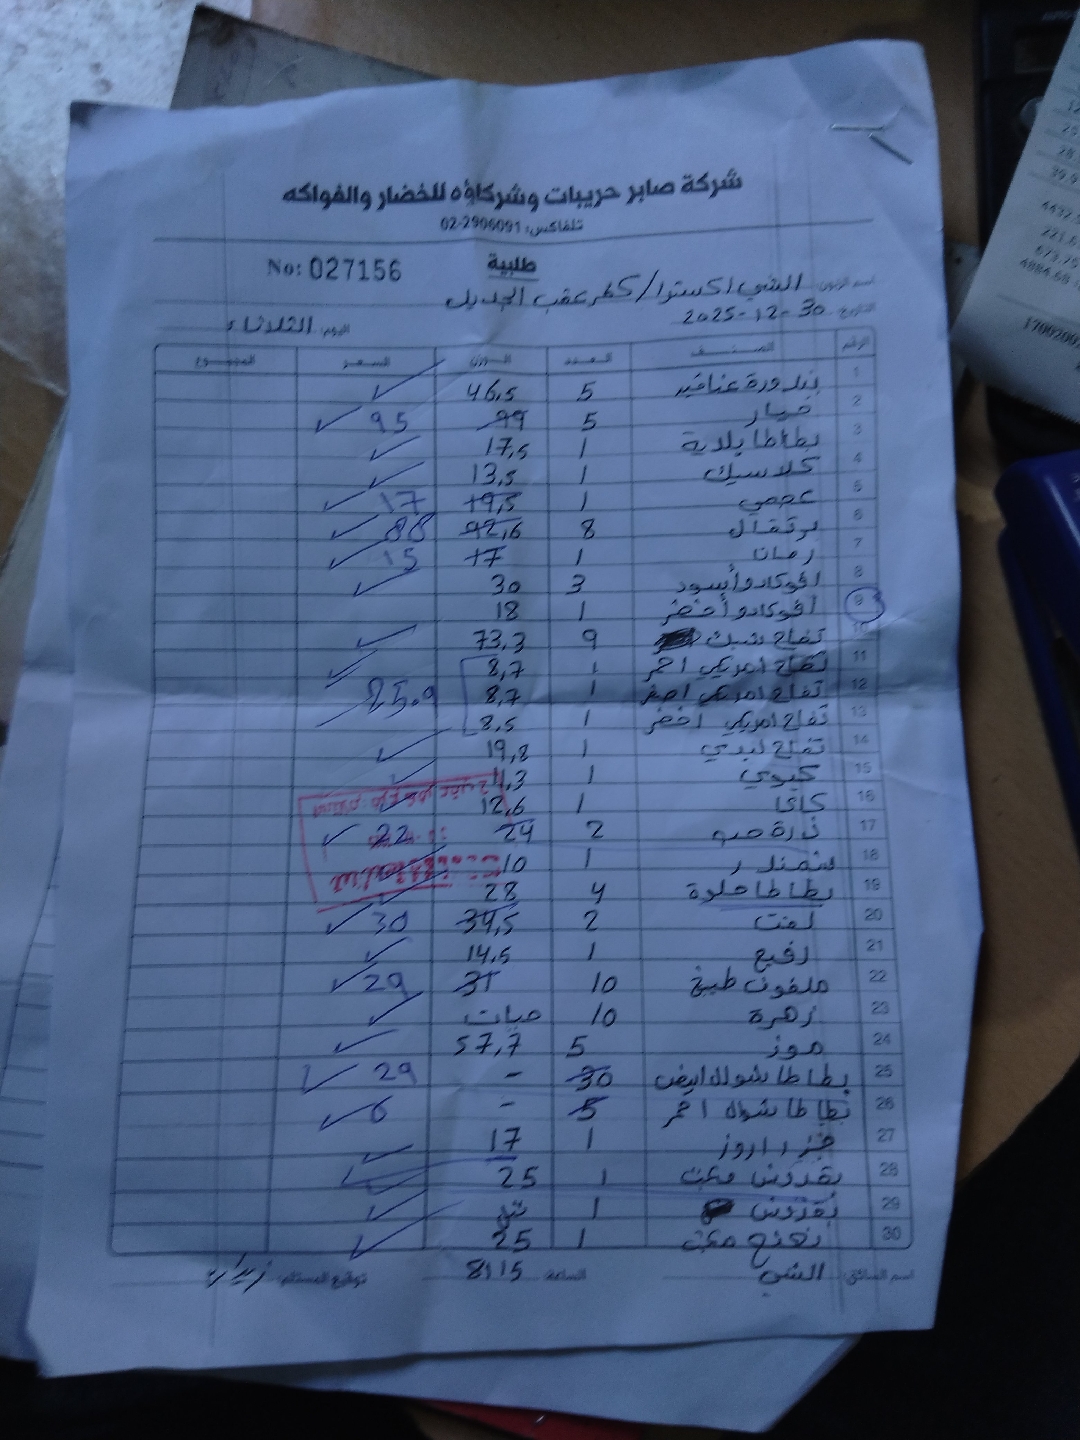 شركة صابر حريبات وشركاؤه للخضار والفواكه
تلفاكس: 02-2906091
طلبية
No: 027156
اسم الزبون: الشني اكسترا/كفر عقب الجديد
التاريخ: 30-12-2025 اليوم: الثلاثاء
الرقم الصنف العدد الوزن السعر المجموع
1 بندورة عناقيد 5 46,5
2 خيار 5 99 95
3 بطاطا بلادية 1 17,5
4 كلاسيك 1 13,5
5 عجمي 1 19,5 17
6 برتقال 8 92,6 88
7 رمان 1 17 15
8 افوكادو أسود 3 30
9 افوكادو أخضر 1 18
10 تفاح شبك 9 73,3
11 تفاح امريكي احمر 1 8,7
12 تفاح امريكي اصفر 1 8,7 25.9
13 تفاح امريكي اخضر 1 8,5
14 تفاح ليدي 1 19,8
15 كيوي 1 11,3
16 كاكا 1 12,6
17 ذرة حب 2 24 22
18 شمندر 1 10
19 بطاطا حلوة 4 28
20 لفت 2 34,5 30
21 رفيع 1 14,5
22 ملفوف طبيخ 10 31 29
23 زهرة 10 حبات
24 موز 5 57,7
25 بطاطا شوال ابيض 30 - 29
26 بطاطا شوال احمر 5 - 6
27 جزر اروز 1 17
28 بقدونس مكبث 1 25
29 بقدونس 1
30 نعنع مكبث 1 25
اسم السائق: الشني الساعة 8:15 توقيع المستلم: